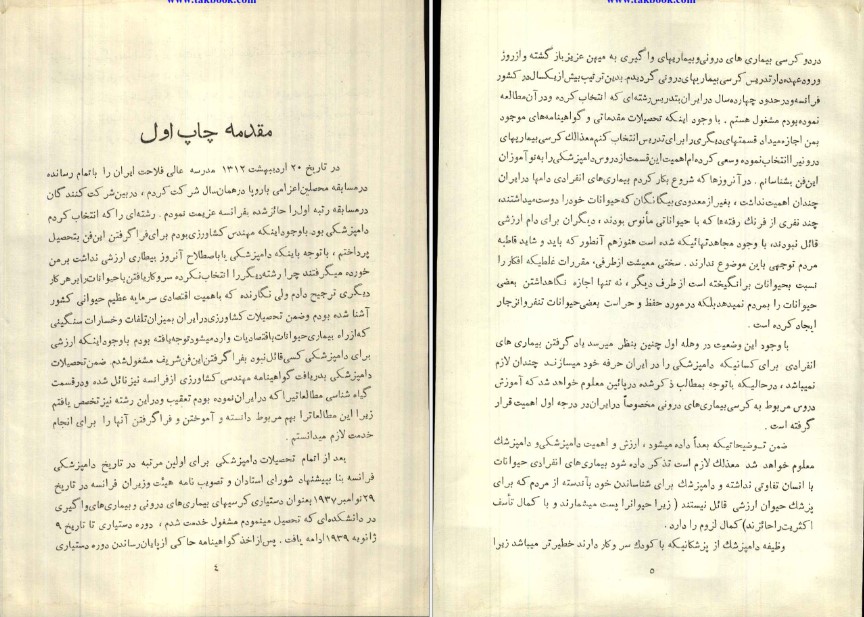 www.takbook.com
مقدمه چاپ اول
در تاریخ ۲۰ اردیبهشت ۱۳۱۲ مدرسه عالی فلاحت ایران را باتمام رسانده
در مسابقه محصلین اعزامی باروپا در همان سال شرکت کردم ، در بین شرکت کنندگان
در مسابقه رتبه اول را حائز شده بفرانسه عزیمت نمودم . رشته‌ای را که انتخاب کردم
دامپزشکی بود باوجود اینکه مهندس کشاورزی بودم برای فراگرفتن این فن بتحصیل
پرداختم ، با توجه باینکه دامپزشکی یا باصطلاح آنروز بیطاری ارزشی نداشت بر من
خورده میگرفتند چرا رشته دیگر را انتخاب نکرده سروکار یافتن با حیوانات را بر هر کار
دیگری ترجیح دادم ولی نگارنده که باهمیت اقتصادی سرمایه عظیم حیوانی کشور
آشنا شده بودم و ضمن تحصیلات کشاورزی در ایران بمیزان تلفات و خسارات سنگینی
که از راه بیماری حیوانات باقتصادیات وارد میشود توجه یافته بودم باوجود اینکه ارزشی
برای دامپزشکی کسی قائل نبود بفراگرفتن این فن شریف مشغول شدم . ضمن تحصیلات
دامپزشکی بدریافت گواهینامه مهندسی کشاورزی از فرانسه نیز نائل شده و در قسمت
گیاه شناسی مطالعاتیرا که در ایران نموده بودم تعقیب و در این رشته نیز تخصص یافتم
زیرا این مطالعاترا بهم مربوط دانسته و آموختن و فراگرفتن آنها را برای انجام
خدمت لازم میدانستم .
بعد از اتمام تحصیلات دامپزشکی برای اولین مرتبه در تاریخ دامپزشکی
فرانسه بنا بپیشنهاد شورای استادان و تصویب نامه هیئت وزیران فرانسه در تاریخ
۲۹ نوامبر ۱۹۳۷ بعنوان دستیاری کرسیهای بیماری‌های درونی و بیماری‌های واگیری
در دانشکده‌ای که تحصیل مینمودم مشغول خدمت شدم ، دوره دستیاری تا تاریخ ۹
ژانویه ۱۹۳۹ ادامه یافت . پس از اخذ گواهینامه حاکی از پایان رساندن دوره دستیاری
۴
www.takbook.com
در دو کرسی بیماری های درونی و بیماریهای واگیری به میهن عزیز باز گشته و از روز
ورود عهده‌دار تدریس کرسی بیماریهای درونی گردیدم. بدین ترتیب بیش از یکسال در کشور
فرانسه و در حدود چهارده سال در ایران بتدریس رشته‌ای که انتخاب کرده و در آن مطالعه
نموده بودم مشغول هستم . با وجود اینکه تحصیلات مقدماتی و گواهینامه‌های موجود
بمن اجازه میداد قسمتهای دیگری را برای تدریس انتخاب کنم معذالک کرسی بیماریهای
درونی را انتخاب نموده و سعی کرده‌ام اهمیت این قسمت از دروس دامپزشکی را به نو آموزان
این فن بشناسانم . در آنروزها که شروع بکار کردم بیماری‌های انفرادی دامها در ایران
چندان اهمیت نداشت ، بغیر از معدودی بیگانگان که حیوانات خود را دوست میداشتند،
چند نفری از فرنگ رفته‌ها که با حیواناتی مأنوس بودند ، دیگران برای دام ارزشی
قائل نبودند، با وجود مجاهدتهائیکه شده است هنوز هم آنطور که باید و شاید قاطبه
مردم توجهی باین موضوع ندارند . سختی معیشت از طرفی، مقررات غلطیکه افکار را
نسبت بحیوانات برانگیخته است از طرف دیگر ، نه تنها اجازه نگاهداشتن بعضی
حیوانات را بمردم نمیدهد بلکه در مورد حفظ و حراست بعضی حیوانات تنفر و انزجار
ایجاد کرده است .
با وجود این وضعیت در وهله اول چنین بنظر میرسد یاد گرفتن بیماری های
انفرادی برای کسانیکه دامپزشکی را در ایران حرفه خود میسازند چندان لازم
نمیباشد ، در حالیکه با توجه بمطالب ذکر شده در پائین معلوم خواهد شد که آموزش
دروس مربوط به کرسی بیماری‌های درونی مخصوصاً در ایران در درجه اول اهمیت قرار
گرفته است .
ضمن توضیحاتیکه بعداً داده میشود ، ارزش و اهمیت دامپزشکی و دامپزشک
معلوم خواهد شد معذلک لازم است تذکر داده شود بیماری‌های انفرادی حیوانات
با انسان تفاوتی نداشته و دامپزشک برای شناساندن خود بآندسته از مردم که برای
پزشک حیوان ارزشی قائل نیستند ( زیرا حیوانرا پست میشمارند و با کمال تأسف
اکثریت را حائزند) کمال لزوم را دارد .
وظیفه دامپزشک از پزشکانیکه با کودک سر و کار دارند خطیرتر میباشد زیرا
۵